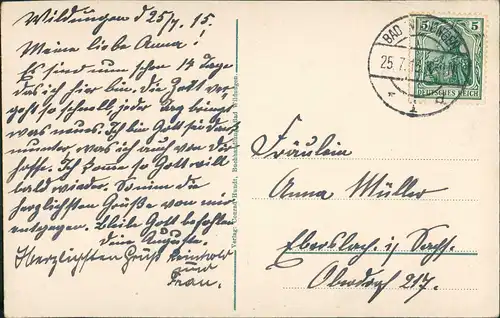 Wildungen d 25/7. 15.
Meine liebe Anna!
Es sind nun schon 14 Tage
das ich hier bin. Die Zeit ver-
geht so schnell, jeder Tag bringt
was neues. Ich bin Gott sei Dank
munter, was ich auch von dir
hoffe. Ich komme so Gott will
bald wieder. So nimm die
herzlichsten Grüße von mir
entgegen. Bleibe Gott befohlen
Deine Auguste.
Herzlichsten Gruß Reinhold
und
Frau.
Verlag: Conrad Hundt, Buchhandlung, Bad Wildungen.
BAD WILDUNGEN
25.7.15
5 5
DEUTSCHES REICH
Fräulein
Anna Müller
Ebersbach i/ Sachs.
Oberdorf 217.